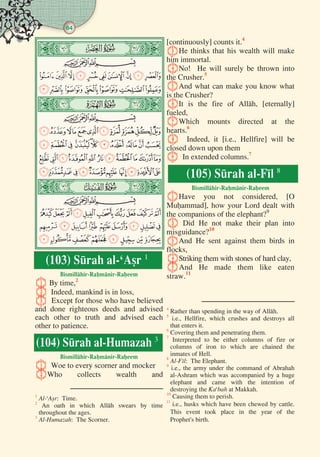 64
سُورَةُ العَصْرِ
بِسْمِ اللَّهِ الرَّحْمَٰنِ الرَّحِيمِ
وَالْعَصْرِ ۝ إِنَّ الْإِنسَانَ لَفِي خُسْرٍ ۝ إِلَّا الَّذِينَ آمَنُوا
وَعَمِلُوا الصَّالِحَاتِ وَتَوَاصَوْا بِالْحَقِّ وَتَوَاصَوْا بِالصَّبْرِ ۝
سُورَةُ الهُمَزَةِ
بِسْمِ اللَّهِ الرَّحْمَٰنِ الرَّحِيمِ
وَيْلٌ لِّكُلِّ هُمَزَةٍ لُّمَزَةٍ ۝ الَّذِي جَمَعَ مَالًا وَعَدَّدَهُ ۝
يَحْسَبُ أَنَّ مَالَهُ أَخْلَدَهُ ۝ كَلَّا لَيُنبَذَنَّ فِي الْحُطَمَةِ ۝
وَمَا أَدْرَاكَ مَا الْحُطَمَةُ ۝ نَارُ اللَّهِ الْمُوقَدَةُ ۝ الَّتِي تَطَّلِعُ
عَلَى الْأَفْئِدَةِ ۝ إِنَّهَا عَلَيْهِم مُّؤْصَدَةٌ ۝ فِي عَمَدٍ مُّمَدَّدَةٍ ۝
سُورَةُ الفِيلِ
بِسْمِ اللَّهِ الرَّحْمَٰنِ الرَّحِيمِ
أَلَمْ تَرَ كَيْفَ فَعَلَ رَبُّكَ بِأَصْحَابِ الْفِيلِ ۝ أَلَمْ يَجْعَلْ كَيْدَهُمْ
فِي تَضْلِيلٍ ۝ وَأَرْسَلَ عَلَيْهِمْ طَيْرًا أَبَابِيلَ ۝ تَرْمِيهِم
بِحِجَارَةٍ مِّن سِجِّيلٍ ۝ فَجَعَلَهُمْ كَعَصْفٍ مَّأْكُولٍ ۝
(103) Sūrah al-‘Aṣr 1
Bismillāhir-Raḥmānir-Raḥeem
1 By time,2
2 Indeed, mankind is in loss,
3 Except for those who have believed
and done righteous deeds and advised
each other to truth and advised each
other to patience.
(104) Sūrah al-Humazah 3
Bismillāhir-Raḥmānir-Raḥeem
1 Woe to every scorner and mocker
2 Who collects wealth and
1 Al-‘Aṣr: Time.
2 An oath in which Allāh swears by time
throughout the ages.
3 Al-Humazah: The Scorner.
[continuously] counts it.4
3 He thinks that his wealth will make
him immortal.
4 No! He will surely be thrown into
the Crusher.5
5 And what can make you know what
is the Crusher?
6 It is the fire of Allāh, [eternally]
fueled,
7 Which mounts directed at the
hearts.6
8 Indeed, it [i.e., Hellfire] will be
closed down upon them
9 In extended columns.7
(105) Sūrah al-Fīl 8
Bismillāhir-Raḥmānir-Raḥeem
1 Have you not considered, [O
Muḥammad], how your Lord dealt with
the companions of the elephant?9
2 Did He not make their plan into
misguidance?10
3 And He sent against them birds in
flocks,
4 Striking them with stones of hard clay,
5 And He made them like eaten
straw.11
4 Rather than spending in the way of Allāh.
5 i.e., Hellfire, which crushes and destroys all
that enters it.
6 Covering them and penetrating them.
7 Interpreted to be either columns of fire or
columns of iron to which are chained the
inmates of Hell.
8 Al-Fīl: The Elephant.
9 i.e., the army under the command of Abrahah
al-Ashram which was accompanied by a huge
elephant and came with the intention of
destroying the Ka‘bah at Makkah.
10 Causing them to perish.
11 i.e., husks which have been chewed by cattle.
This event took place in the year of the
Prophet's birth.